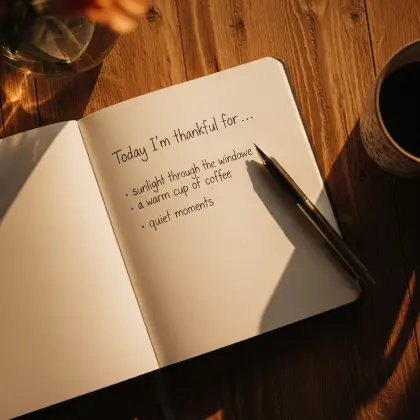 Today I'm thankful for ...
• sunlight through the windowe
• a warm cup of coffee
• quiet moments